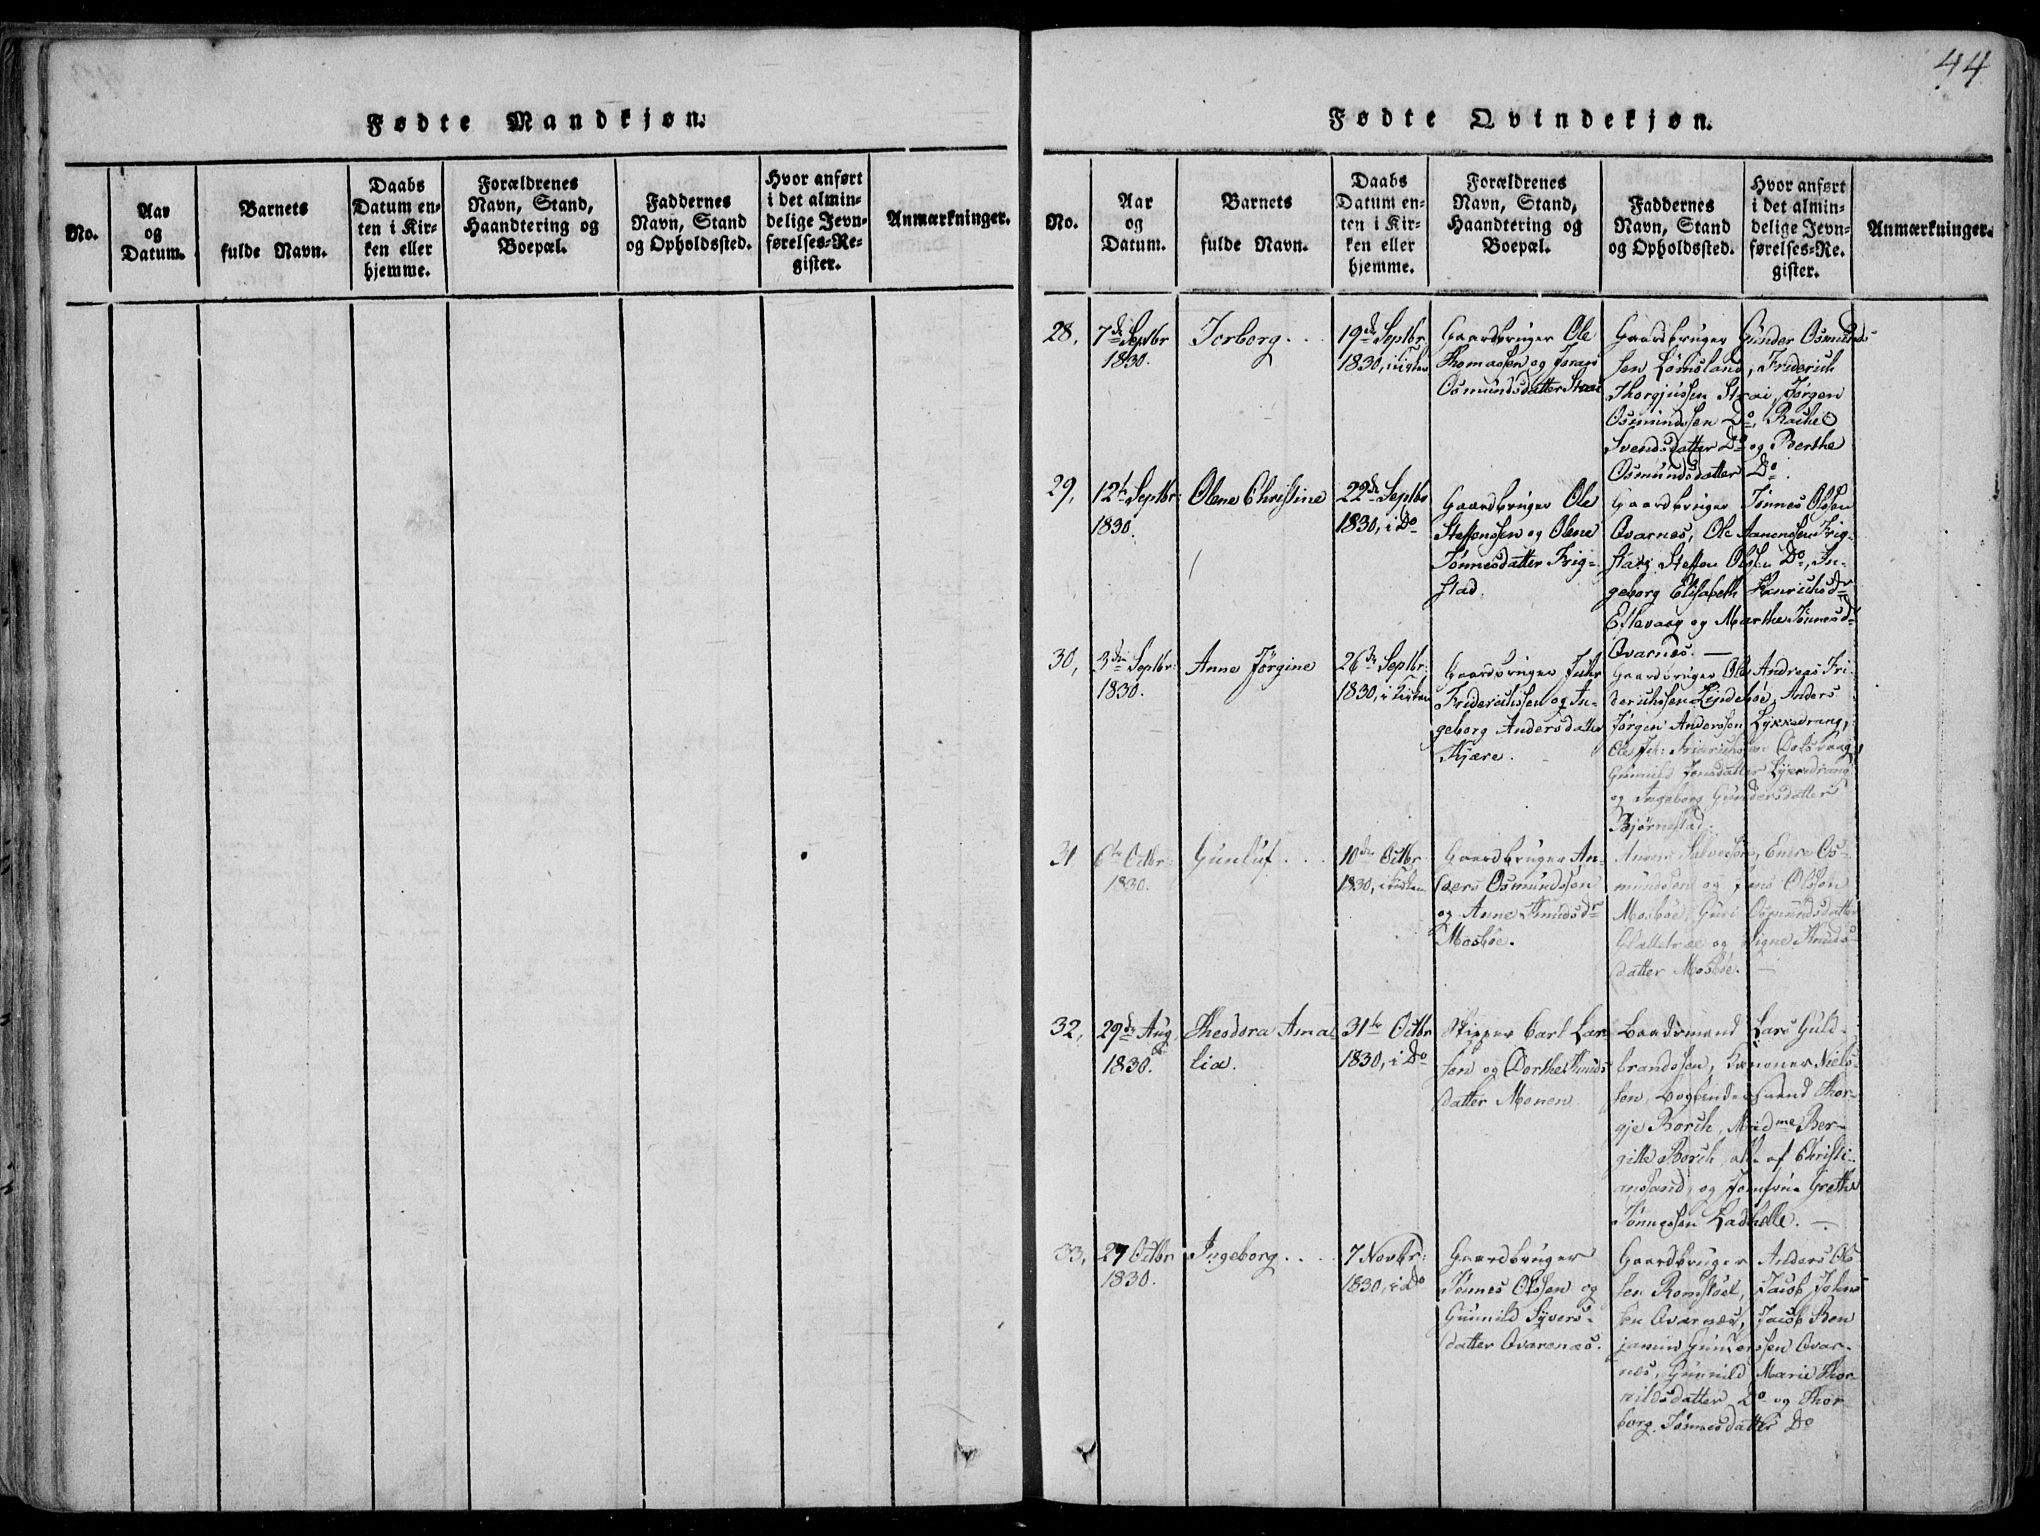 44
Fødte Mandkjøn.
No.
Aar
og
Datum.
Barnets
fulde Navn.
Daabs
Datum en-
ten i Kir-
ken eller
hjemme.
Forældrenes
Navn, Stand,
Haandtering og
Boepæl.
Faddernes
Navn, Stand
og Opholdssted.
Hvor anført
i det almin-
delige Jevn-
førelses-Re-
gister.
Anmærkninger.
Fødte Qvindekjøn.
No.
Aar
og
Datum.
Barnets
fulde Navn.
Daabs
Datum en-
ten i Kir-
ken eller
hjemme.
Forældrenes
Navn, Stand,
Haandtering og
Boepæl.
Faddernes
Navn, Stand
og Opholdssted.
Hvor anført
i det almin-
delige Jevn-
førelses-Re-
gister.
Anmærkninger.
28,
7de Septbr
1830.
Torborg
19de Septbr
1830, i Kirken
Gaardbruger Ole
Thomassen og
Osmundsdatter Straie
Gaardbruger Gunder Osmunds-
sen Lomsland, Friderich
Thorgjussen Strai, Jørgen
Osmundssen Do, Rachel
Svendsdatter Do og Berthe
Osmundsdatter Do.
29,
12te Septbr:
1830.
Olene Christine
22de Septbr
1830, i Do
Gaardbruger Ole
Steffenssen og Olene
Tønnesdatter Frig-
stad.
Gaardbruger Tønnes Olssen
Qvarnes, Ole Aanonssen Frig-
stad, Steffen Olssen Do, In-
geborg Elisabeth Hanrichsdr
og Marthe Tønnesd-
Qvarnes. —
30,
3die Septbr:
1830.
Anne Jørgine
26de Septbr:
1830, i Kirken
Gaardbruger
Friderichssen og In-
geborg Andersdatter
Kjære.
Gaardbruger Ole Andreas Fri-
derichssen Lindeboe, Anders
Jørgen Anderssen Lykkedrang,
Gunnild Jonsdatter Lykkedrang
og Ingeborg Gundersdatter
Bjørnestad.
31
6te Octbr:
1830.
Gunluf
10de Octbr
1830, i Kirken
Gaardbruger An-
ders Osmundssen
og Anne Knudsdr
Mosbøe.
Salvesen, Os-
mundssen og Jens Olssen
Mosbøe, Guri Osmundsdatter
og Signe Knuds-
datter Mosbøe. —
32,
29de Aug
1830.
Theodora Ama-
lia.
31te Octbr
1830, i Do
Skipper Carl Lar-
sen og Dorthe Knuds
datter Monen
Baadsmand Lars Guld-
brandssen, Kanoner Niels-
sen, Svend Thor-
gje Borch, Madme Ber-
gitte Borch, alle af Christi-
ansand, og Jomfrue Grethe
Tønnessen Ladehelle. —
33,
27 Octbr
1830.
Ingeborg
7 Novbr:
1830, i Do
Gaardbruger
Tønnes Olssen og
Gunnild Syvers-
datter Qvarenæs.
Gaardbruger Anders Ols
sen Romstøel, Jacob Johns
sen Qvarnæs, Jacob Ben
jamin Gunderssen Qvar-
nes, Gunnild Marie Thor
kildsdatter Do og Thor-
borg Tønnesdatter Do